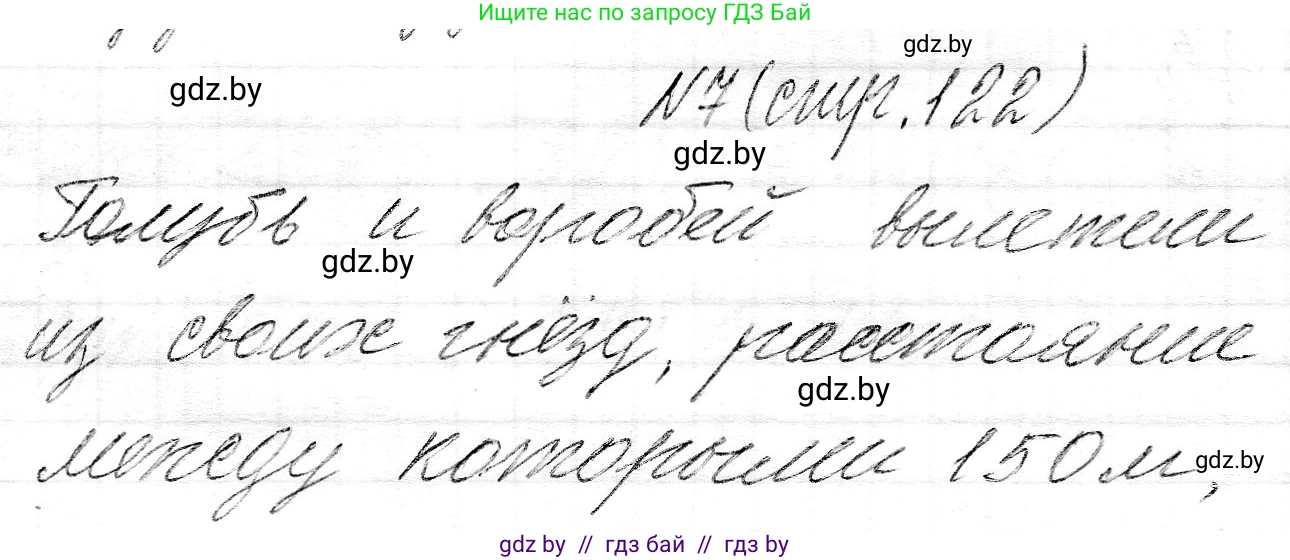 Ищите нас по запросу ГДЗ Бай
gdz.by
gdz.by
N7 (стр. 122)
gdz.by
Голубь и воробей вылетели
gdz.by
из своих гнёзд, расстояние
gdz.by
между которыми 150 м,
gdz.by
gdz by // гдз бай // гдз by